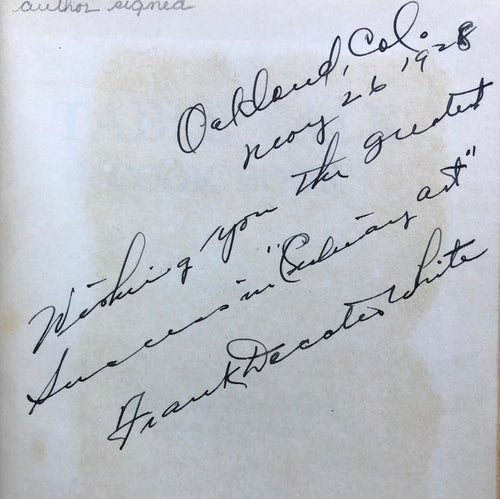 author signed
Oakland, Cal.
Nov 26 1928
Wishing you the greatest
Success in "Culinary art"
Frank Decatur White